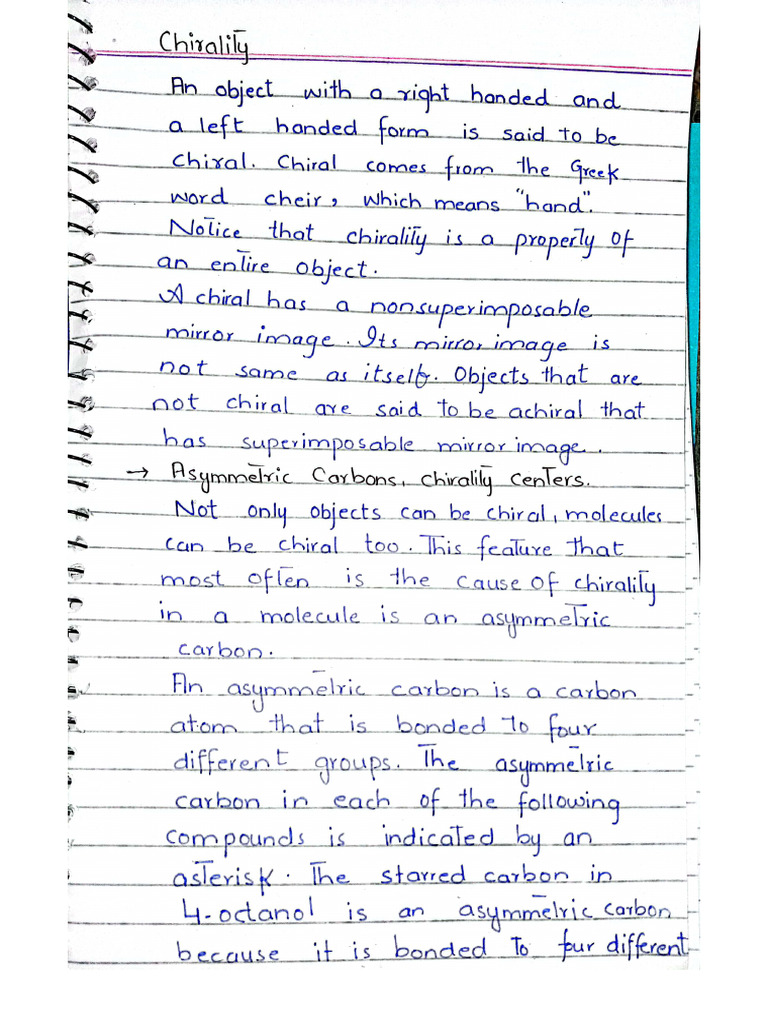 Chirality
An object with a right handed and
a left handed form is said to be
chiral. Chiral comes from the Greek
word cheir, which means "hand".
Notice that chirality is a property of
an entire object.
A chiral has a nonsuperimposable
mirror image. Its mirror image is
not same as itself. Objects that are
not chiral are said to be achiral that
has superimposable mirror image.
→ Asymmetric Carbons, chirality centers.
Not only objects can be chiral, molecules
can be chiral too. This feature that
most often is the cause of chirality
in a molecule is an asymmetric
carbon.
An asymmetric carbon is a carbon
atom that is bonded to four
different groups. The asymmetric
carbon in each of the following
compounds is indicated by an
asterisk. The starred carbon in
4-octanol is an asymmetric carbon
because it is bonded to four different